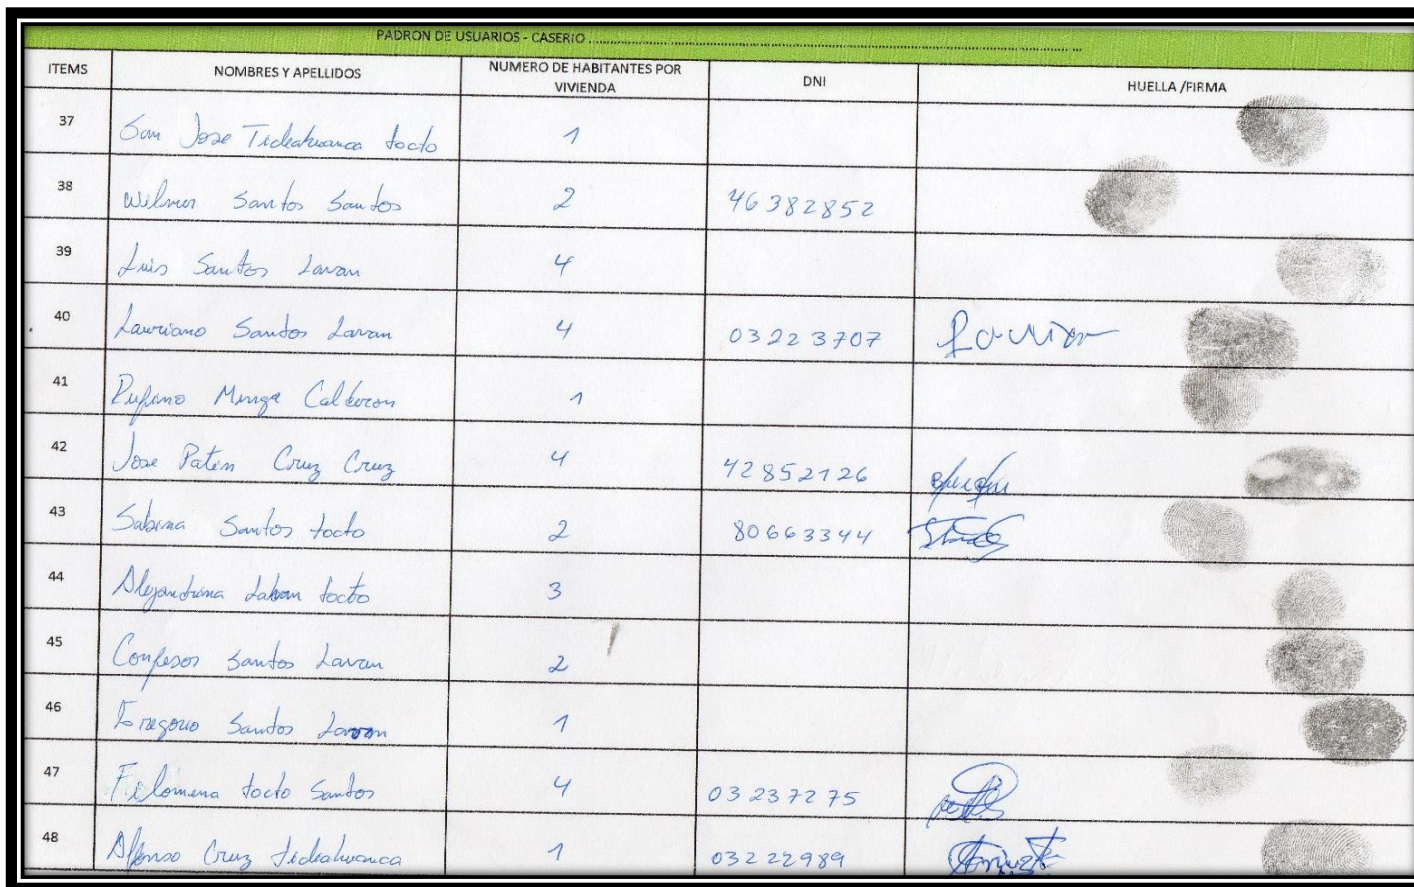 PADRON DE USUARIOS - CASERIO ........................................
ITEMS NOMBRES Y APELLIDOS NUMERO DE HABITANTES POR VIVIENDA DNI HUELLA /FIRMA
37 San Jose Ticliahuanca tocto 1
38 Wilmer Santos Santos 2 46382852
39 Luis Santos Lavan 4
40 Lauriano Santos Lavan 4 03223707
41 Rufino Minga Calderon 1
42 Jose Cruz Cruz 4 42852126
43 Sabina Santos tocto 2 80663344
44 Alejandrina Laban tocto 3
45 Confesor Santos Lavan 2
46 Gregorio Santos Lavan 1
47 Filomena tocto Santos 4 03237275
48 Alfonso Cruz ticliahuanca 1 03222989